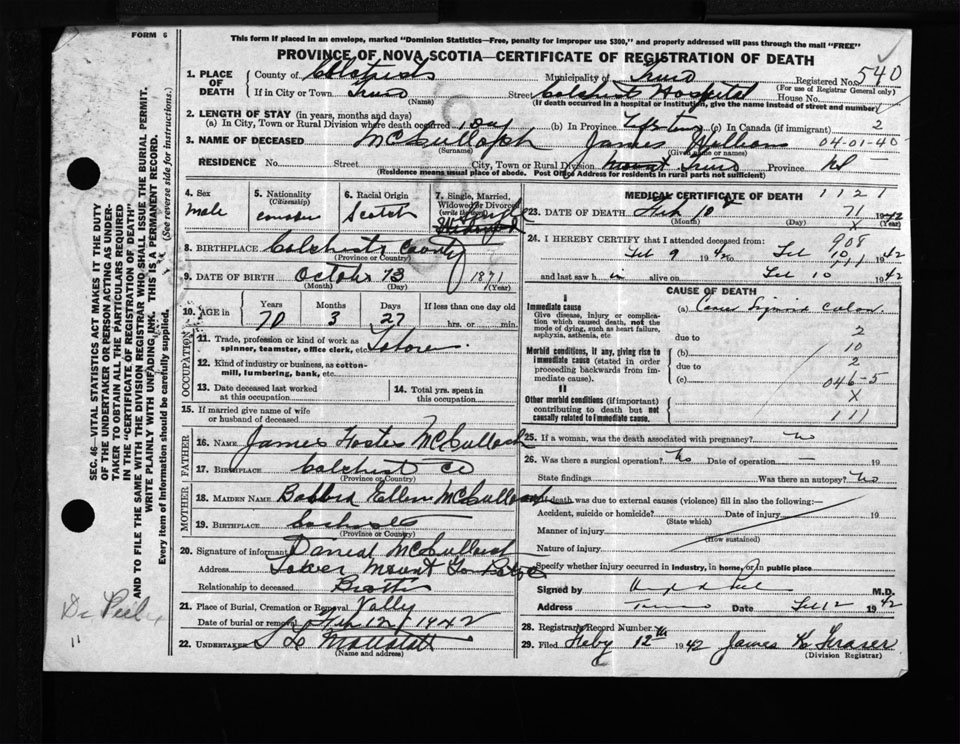 FORM 6
This form if placed in an envelope, marked "Dominion Statistics—Free, penalty for improper use $300," and properly addressed will pass through the mail "FREE"
PROVINCE OF NOVA SCOTIA—CERTIFICATE OF REGISTRATION OF DEATH
1. PLACE OF DEATH County of Municipality of Truro Registered No. 540
(For use of Registrar General only)
If in City or Town Truro (Name) Street Colchester Hospital House No.
(If death occurred in a hospital or institution, give the name instead of street and number)
2. LENGTH OF STAY (in years, months and days)
(a) In City, Town or Rural Division where death occurred 1 Day (b) In Province Lifetime (c) In Canada (if immigrant) 2
3. NAME OF DECEASED McCulloch (Surname) James William (Given name or names) 04-01-40
RESIDENCE No. Street City, Town or Rural Division Mount Truro Province NS
(Residence means usual place of abode. Post Office Address for residents in rural parts not sufficient)
4. Sex Male
5. Nationality (Citizenship)
6. Racial Origin Scotch
7. Single, Married, Widowed or Divorced (write the word) Single
8. BIRTHPLACE Colchester County (Province or Country)
9. DATE OF BIRTH October 13 1871
(Month) (Day) (Year)
10. AGE in Years 70 Months 3 Days 27 If less than one day old hrs. or min.
OCCUPATION
11. Trade, profession or kind of work as spinner, teamster, office clerk, etc. Labore
12. Kind of industry or business, as cotton-mill, lumbering, bank, etc.
13. Date deceased last worked at this occupation
14. Total yrs. spent in this occupation
15. If married give name of wife or husband of deceased
FATHER
16. NAME James Foster McCulloch
17. BIRTHPLACE Colchest Co (Province or Country)
MOTHER
18. MAIDEN NAME Ellen McCulloch
19. BIRTHPLACE (Province or Country)
20. Signature of informant Daniel McCulloch
Address Lower Mount
Relationship to deceased Brother
21. Place of Burial, Cremation or Removal Vally
Date of burial or removal Feb 12 1942
22. UNDERTAKER
(Name and address)
MEDICAL CERTIFICATE OF DEATH 1 1 2 1
23. DATE OF DEATH Feb 10 71 1942
(Month) (Day) X (Year)
24. I HEREBY CERTIFY that I attended deceased from: 908
Feb 9 1942 to Feb 10 1942
111
and last saw h im alive on Feb 10 1942
CAUSE OF DEATH
I
Immediate cause
Give disease, injury or complication which caused death, not the mode of dying, such as heart failure, asphyxia, asthenia, etc.
(a) Cancer Sigmoid colon
2
due to
Morbid conditions, if any, giving rise to immediate cause (stated in order proceeding backwards from immediate cause).
(b) 10
due to 2
(c) 046-5
II
Other morbid conditions (if important) contributing to death but not causally related to immediate cause.
X
111
25. If a woman, was the death associated with pregnancy? No
26. Was there a surgical operation? No Date of operation — 19
State findings Was there an autopsy? No
If death was due to external causes (violence) fill in also the following:—
Accident, suicide or homicide? Date of injury 19
(State which)
Manner of injury
(How sustained)
Nature of injury
Specify whether injury occurred in industry, in home, or in public place
Signed by M.D.
Address Truro Date Feb 12 1942
28. Registrar's Record Number
29. Filed Feby 12th 1942 James K Fraser
(Division Registrar)
SEC. 46—VITAL STATISTICS ACT MAKES IT THE DUTY OF THE UNDERTAKER OR PERSON ACTING AS UNDERTAKER TO OBTAIN ALL THE PARTICULARS REQUIRED IN THE "CERTIFICATE OF REGISTRATION OF DEATH" AND TO FILE THE SAME WITH THE DIVISION REGISTRAR WHO SHALL ISSUE THE BURIAL PERMIT.
WRITE PLAINLY WITH UNFADING INK. THIS IS A PERMANENT RECORD.
Every item of information should be carefully supplied. (See reverse side for instructions.)
Dr Peel
11